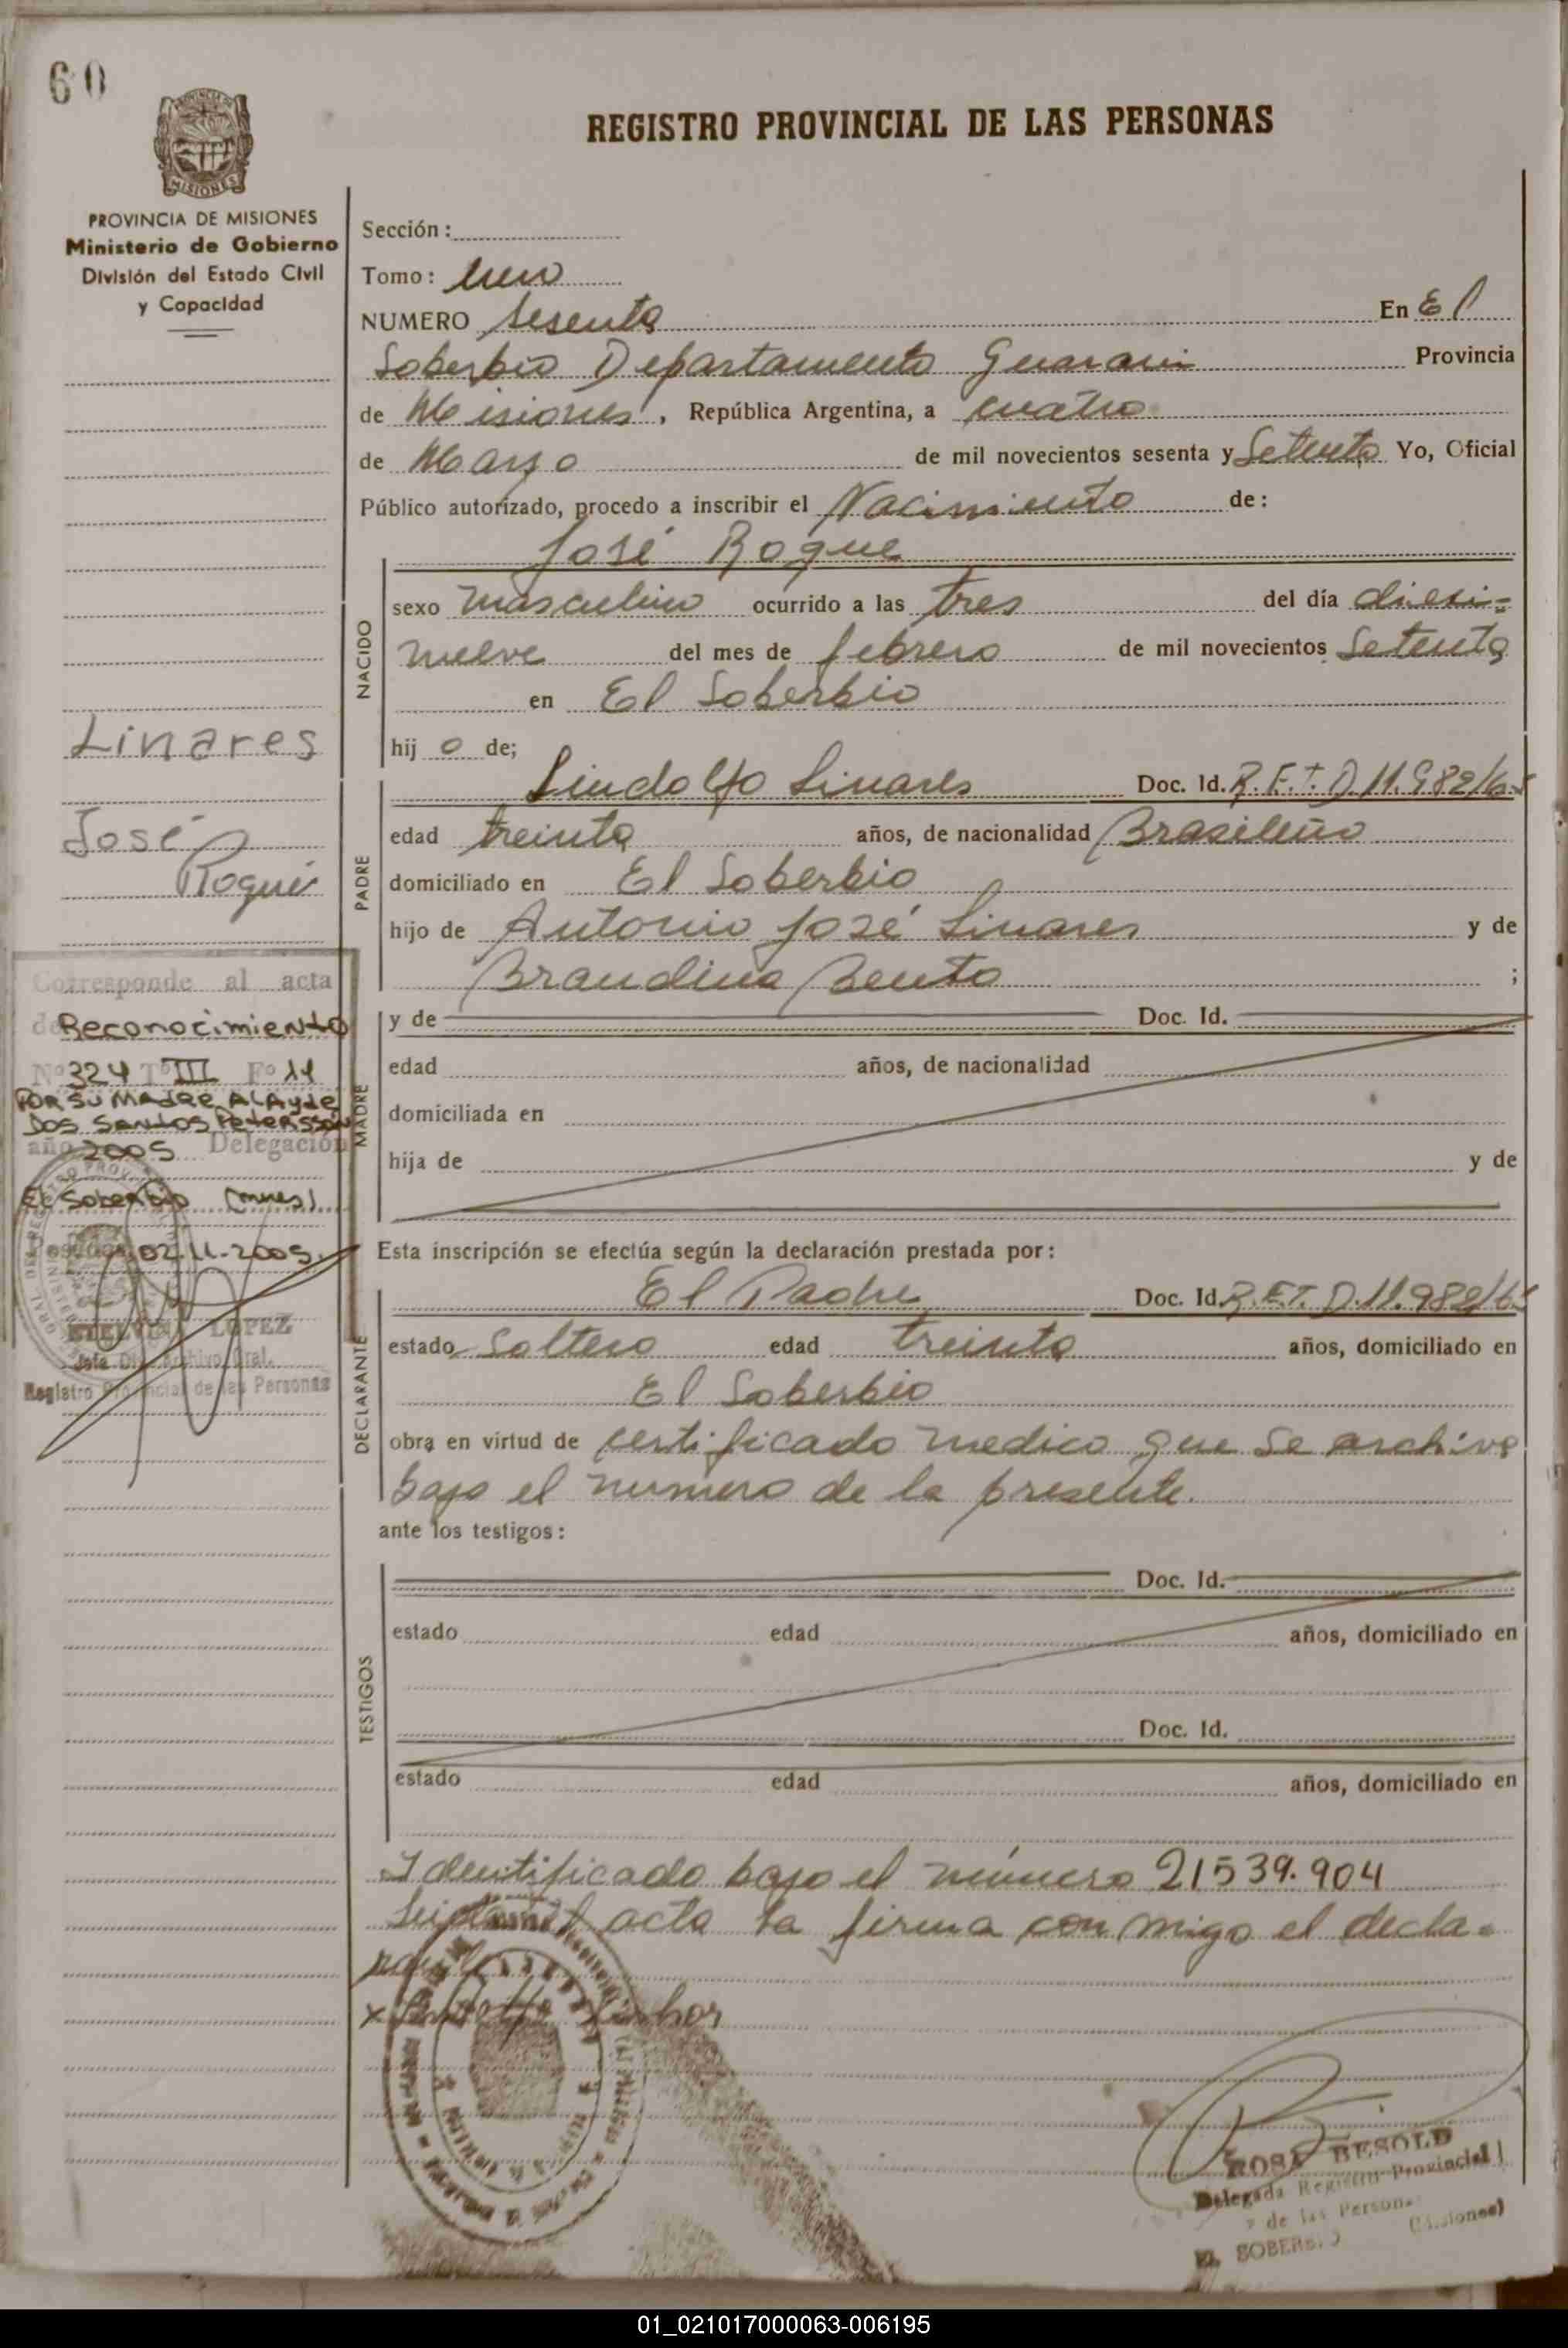 60
REGISTRO PROVINCIAL DE LAS PERSONAS
MISIONES
PROVINCIA DE MISIONES
Ministerio de Gobierno
División del Estado Civil
y Capacidad
Sección:
Tomo: Uno
NUMERO Sesenta En El
Soberbio Departamento Guarani Provincia
de Misiones, República Argentina, a cuatro
de Marzo de mil novecientos sesenta y Setenta Yo, Oficial
Público autorizado, procedo a inscribir el Nacimiento de:
José Roque
NACIDO
sexo masculino ocurrido a las tres del día diesi=
nueve del mes de febrero de mil novecientos Setenta
en El Soberbio
hij o de;
Linares
José
Roque
PADRE
Lindolfo Linares Doc. Id. R.F.T.D.11.982/65
edad treinta años, de nacionalidad Brasileño
domiciliado en El Soberbio
hijo de Antonio José Linares y de
Brandina Bento ;
Corresponde al acta
de Reconocimiento
Nº 324 Tº III Fº 11
POR SU MADRE ALAyde
DOS SANTOS Petersson
año 2005 Delegación
El Soberbio (mnes)
Posadas, 02-11-2005.
LOPEZ
Jefe Div. Archivo Gral.
Registro Provincial de las Personas
MADRE
y de Doc. Id.
edad años, de nacionalidad
domiciliada en
hija de y de
Esta inscripción se efectúa según la declaración prestada por:
DECLARANTE
El Padre Doc. Id. R.F.T. D.11.982/65
estado Soltero edad treinta años, domiciliado en
El Soberbio
obra en virtud de certificado medico que se archiva
bajo el numero de la presente.
ante los testigos:
TESTIGOS
Doc. Id.
estado edad años, domiciliado en
Doc. Id.
estado edad años, domiciliado en
Identificado bajo el número 21539.904
Leida el acta la firma con migo el decla=
rante
x
ROSA BESOLD
Delegada Registro Provincial
de las Personas
EL SOBERBIO (Misiones)
01_021017000063-006195